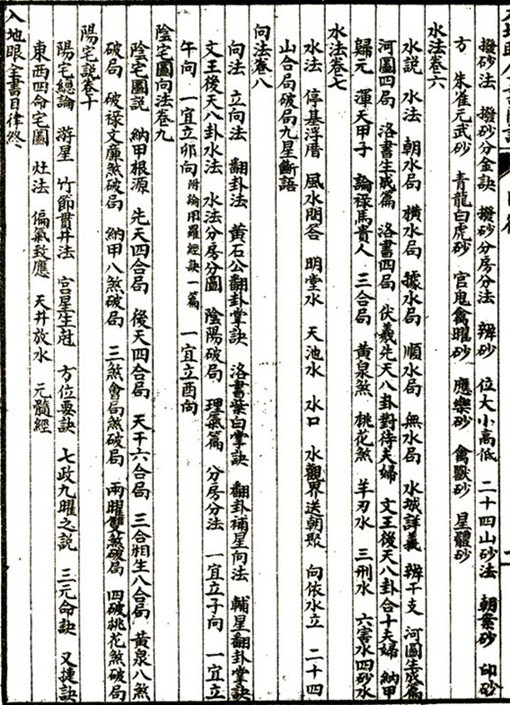 撥砂法 撥砂分金訣 撥砂分房分法 辨砂 位大小高低 二十四山砂法 朝案砂 印砂
方 朱雀元武砂 青龍白虎砂 官鬼禽曜砂 應樂砂 禽獸砂 星體砂
水法卷六
水說 水法 朝水局 橫水局 據水局 順水局 無水局 水城詳義 辨干支 河圖生成篇
河圖四局 洛書生成篇 洛書四局 伏羲先天八卦對待夫婦 文王後天八卦合十夫婦 納甲
歸元 渾天甲子 論祿馬貴人 三合局 黃泉煞 桃花煞 羊刃水 三刑水 六害水四砂水
水法卷七
水法 停基浮厝 風水問答 明堂水 天池水 水口 水觀界送朝聚 向依水立 二十四
山合局破局九星斷語
向法卷八
向法 立向法 翻卦法 黃石公翻卦掌訣 洛書葉白掌訣 翻卦補星向法 輔星翻卦掌訣
文王後天八卦水法 水法分房分圖 陰陽破局 理氣篇 分房分法 一宜立子向 一宜立
午向 一宜立卯向 附論用羅經訣一篇 一宜立酉向
陰宅圖向法卷九
陰宅圖說 納甲根源 先天四合局 後天四合局 天干六合局 三合相生八合局 黃泉八煞
破局 破祿文廉煞破局 納甲八煞破局 三煞會局煞破局 兩曜雙煞破局 四破桃花煞破局
陽宅說卷十
陽宅總論 游星 竹節貫井法 宮星生尅 方位要訣 七政九曜之說 三元命訣 又捷訣
東西四命宅圖 灶法 偏氣致應 天井放水 元髓經
入地眼全書目錄終